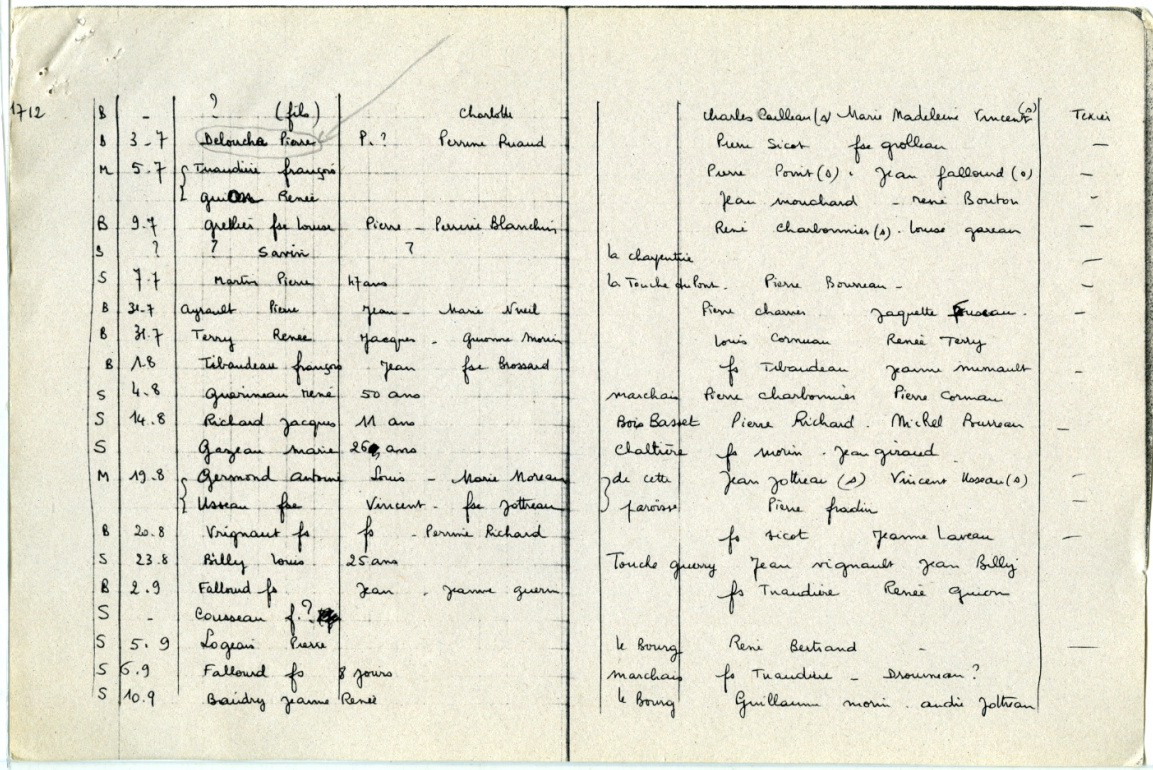 1712 B - ? (fils) Charlotte Charles Cailleau (s) Marie Madeleine Vincent (s) Texier
B 3-7 Deloucha Pierre P. ? Perrine Ruaud Pierre Sicot fse grolleau -
M 5.7 Tuaudière françois Pierre Points (s) . Jean fallourd (s) -
guion Renée Jean mouchard - rené Bouton -
B 9-7 grellier fse Louise Pierre - Perrine Blanchin René Charbonnier (s) . Louise gareau -
S ? ? Savin ? la charpentrie -
S 7.7 Martin Pierre 47 ans la Touche du Pont . Pierre Bourreau - -
B 31-7 Ayrault Pierre Jean - Marie Nueil Pierre charrier Jaquette -
B 31.7 Terry Renée Jacques - guionne Morin Louis Cornuau Renée Terry
B 1.8 Tibaudeau françois Jean fse Brossard fs Tibaudeau jeanne mimault -
S 4.8 Guerineau rené 50 ans marchais Pierre charbonnier Pierre Cornuau
S 14.8 Richard Jacques 11 ans Bois Basset Pierre Richard . Michel Rousseau -
S Gazeau marie 26 ans Claltière fs morin . Jean giraud
M 19.8 Germond antoine Louis - Marie Moreau de cette Jean Jottreau (s) Vincent Usseau (s) -
Usseau fse Vincent . fse Jottreau paroisse Pierre fradin -
B 20.8 Vrignaut fs fs - Perrine Richard fs sicot Jeanne Laveau -
S 23.8 Billy Louis 25 ans Touche guerry Jean vignault Jean Billy
B 2.9 Fallourd fs Jean . Jeanne guerin fs Tuaudière Renée guion
S - Cousseau f. ?
S 5.9 Logeais Pierre le Bourg René Bertrand - -
S 6.9 Fallourd fs 8 jours marchais fs Tuaudière - Drouneau ?
S 10.9 Baudry Jeanne Renée le Bourg Guillaume morin . andré Jottreau